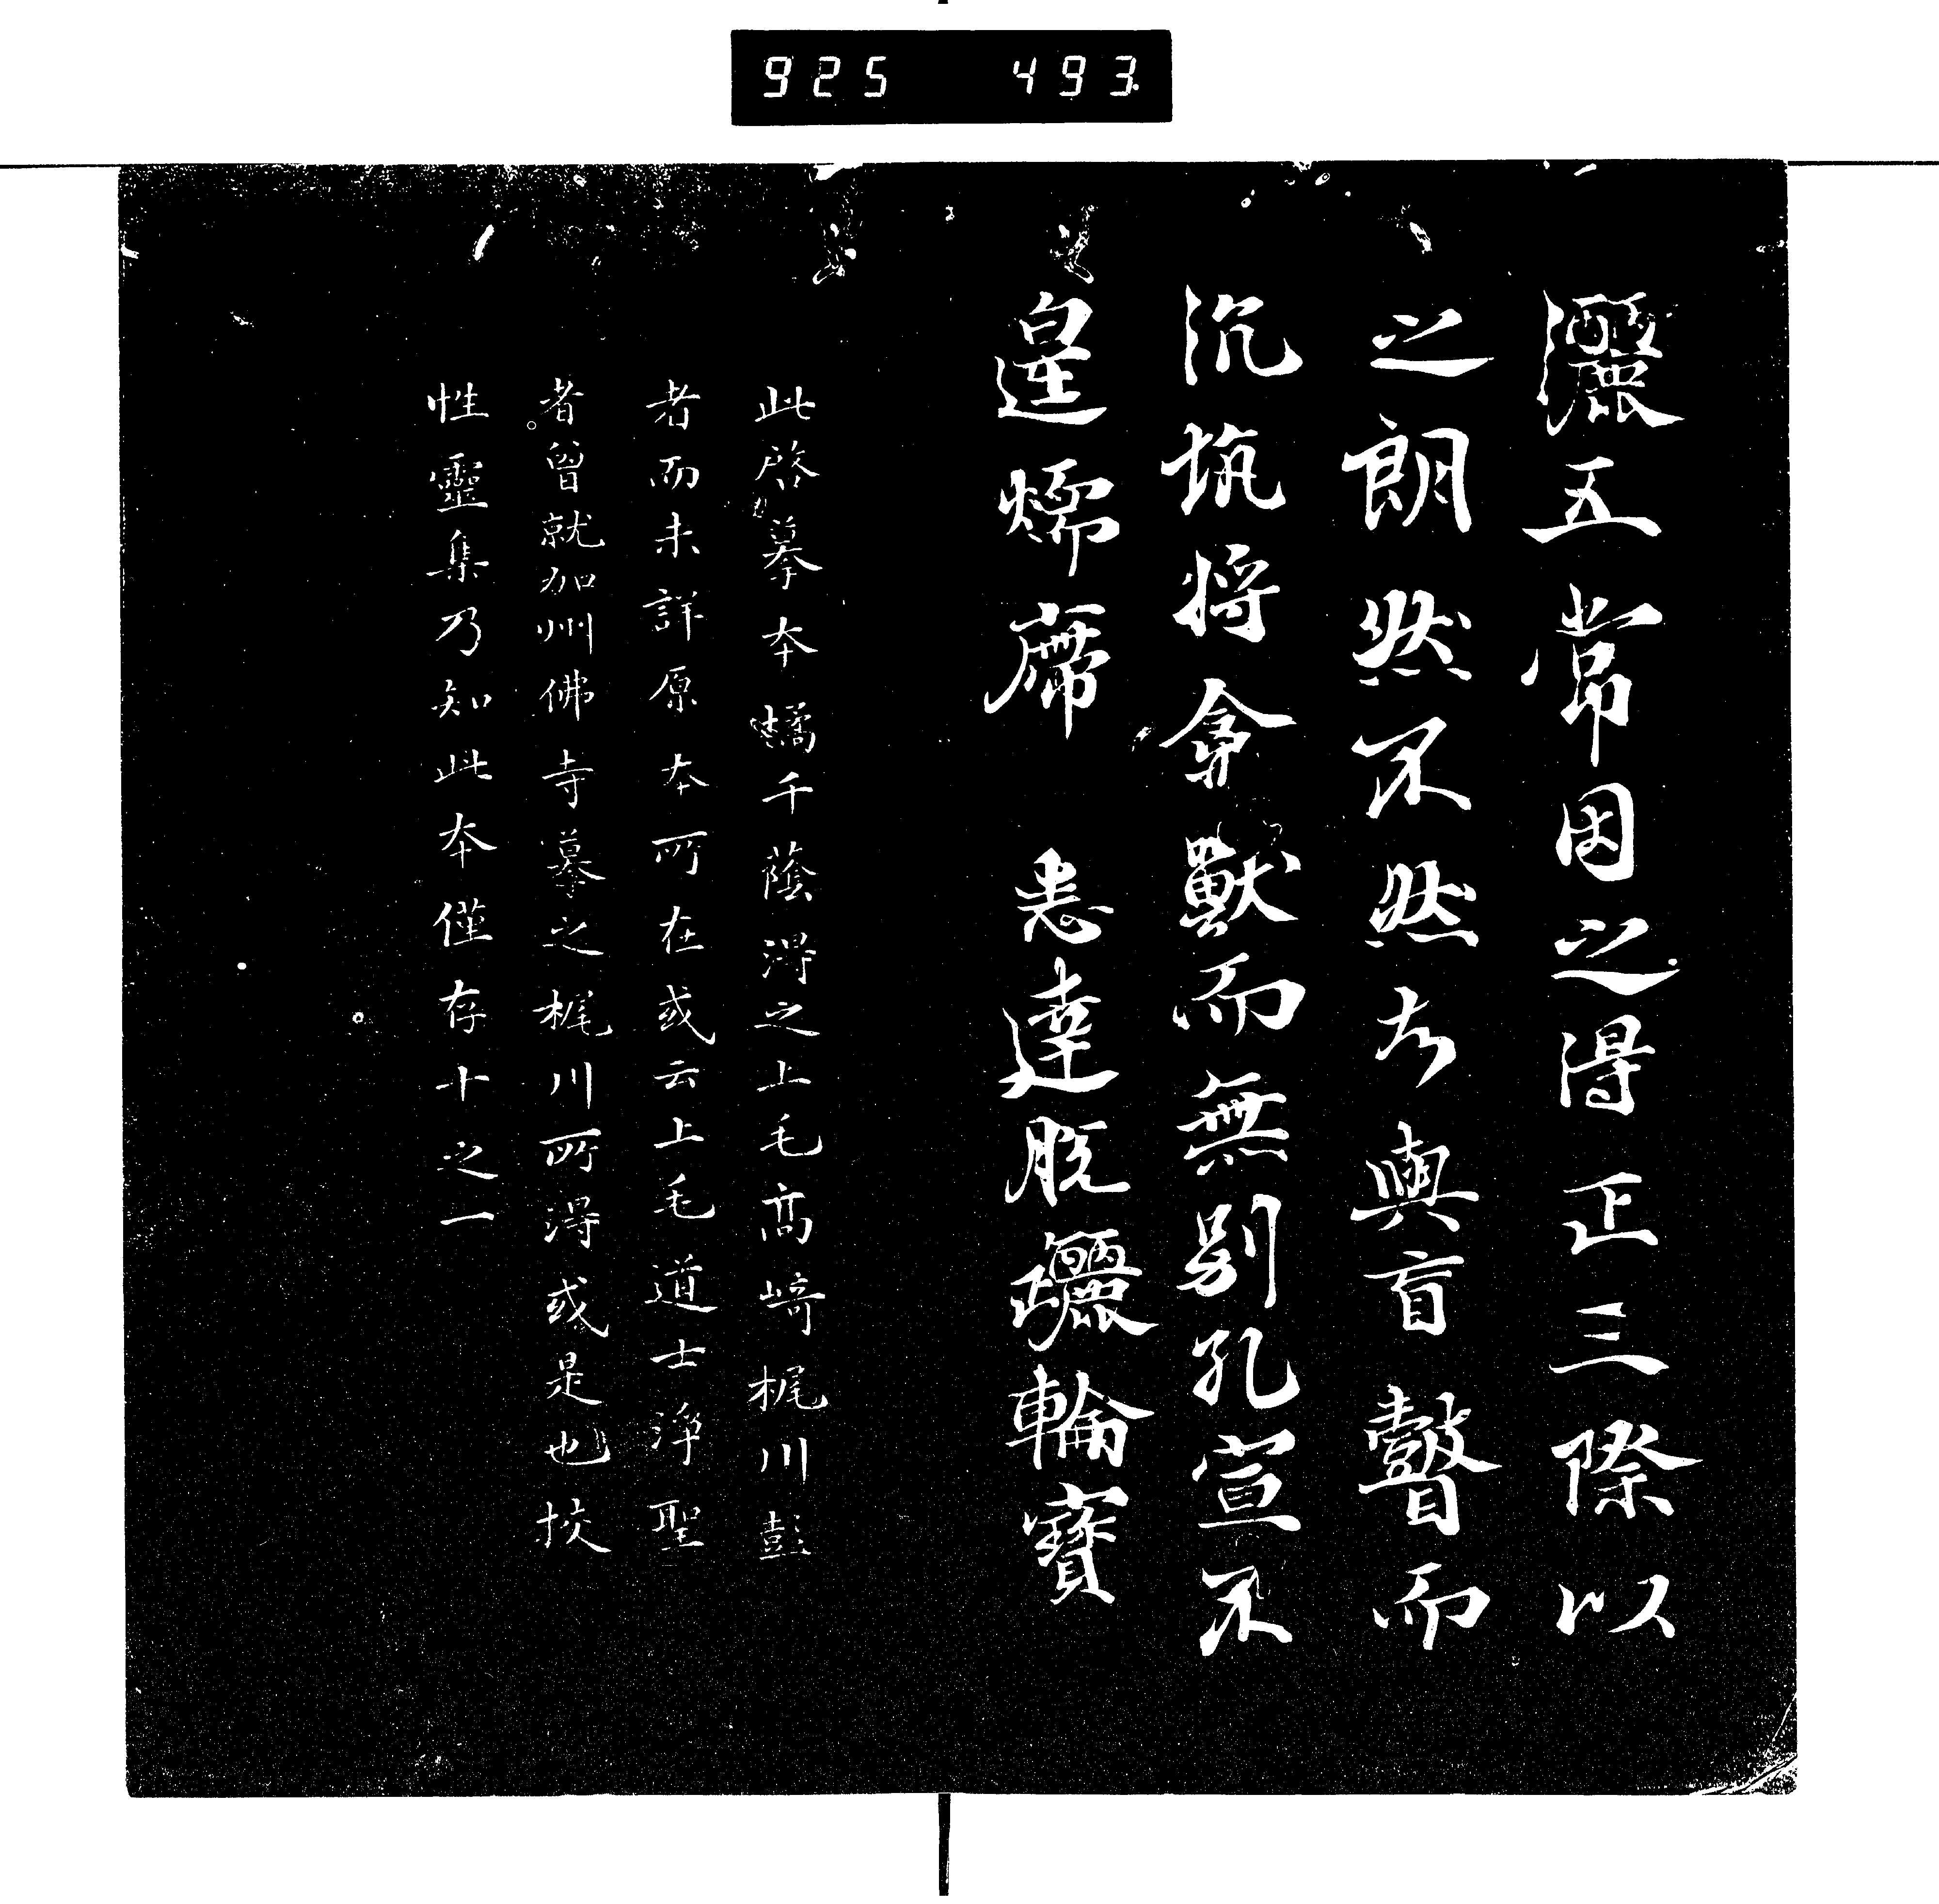 925 493
灑五常因之得正三際以
之朗然不然者與盲瞽而
沉坑將禽獸而無別孔宣不
遑煗席 悉達脫躧輪寶
此啓摹本橘千蔭得之上毛高崎梶川彭
者而未詳原本所在或云上毛道士淨聖
者曾就加州佛寺摹之梶川所得或是也挍
性靈集乃知此本僅存十之一